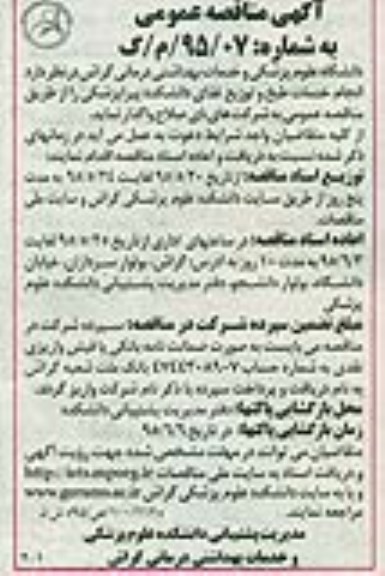 آگهی مناقصه عمومی
به شماره: ۹۵/۰۷/م/ک
دانشکده علوم پزشکی و خدمات بهداشتی درمانی گراش در نظر دارد
انجام خدمات طبخ و توزیع غذای دانشکده پیراپزشکی را از طریق
مناقصه عمومی به شرکت های ذی صلاح واگذار نماید.
از کلیه متقاضیان واجد شرایط دعوت به عمل می آید در زمانهای
ذکر شده نسبت به دریافت و اعاده اسناد مناقصه اقدام نمایند:
توزیع اسناد مناقصه: از تاریخ لغایت به مدت
پنج روز از طریق سایت دانشکده علوم پزشکی گراش و سایت ملی
مناقصات.
اعاده اسناد مناقصه: در ساعتهای اداری از تاریخ لغایت
به مدت ۱۰ روز به آدرس: گراش، بولوار سرداران، خیابان
دانشگاه، بولوار دانشجو، دفتر مدیریت پشتیبانی دانشکده علوم
پزشکی
مبلغ تضمین سپرده شرکت در مناقصه: سپرده شرکت در
مناقصه می بایست به صورت ضمانت نامه بانکی یا فیش واریزی
نقدی به شماره حساب بانک ملت شعبه گراش
به نام دریافت و پرداخت سپرده با ذکر نام شرکت واریز گردد.
محل بازگشایی پاکتها: دفتر مدیریت پشتیبانی دانشکده
زمان بازگشایی پاکتها: در تاریخ
متقاضیان می توانند در مهلت مشخص شده جهت رویت آگهی
و دریافت اسناد به سایت ملی مناقصات http://iets.mporg.ir
و یا به سایت دانشکده علوم پزشکی گراش www.gerums.ac.ir
مراجعه نمایند.
مدیریت پشتیبانی دانشکده علوم پزشکی
و خدمات بهداشتی درمانی گراش